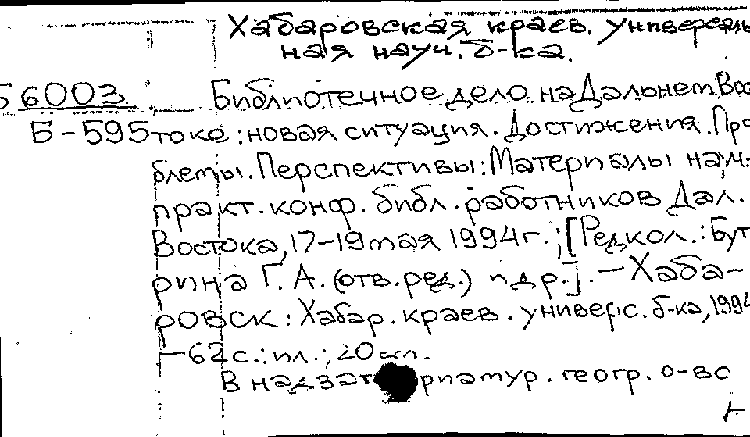 Хабаровская краев. универсаль
ная науч. б-ка.
56003 Библиотечное дело на Дальнем Вос
Б-595 токе: новая ситуация. Достижения. Про
блемы. Перспективы: Материалы науч-
практ. конф. библ. работников Дал.
Востока, 17-19 мая 1994г.; [Редкол.: Бут
рина Г. А. (отв. ред.) и др.]. - Хаба-
ровск: Хабар. краев. универс. б-ка, 1994
-62с.: ил.; 20 см.
В надзаг приамур. геогр. о-во